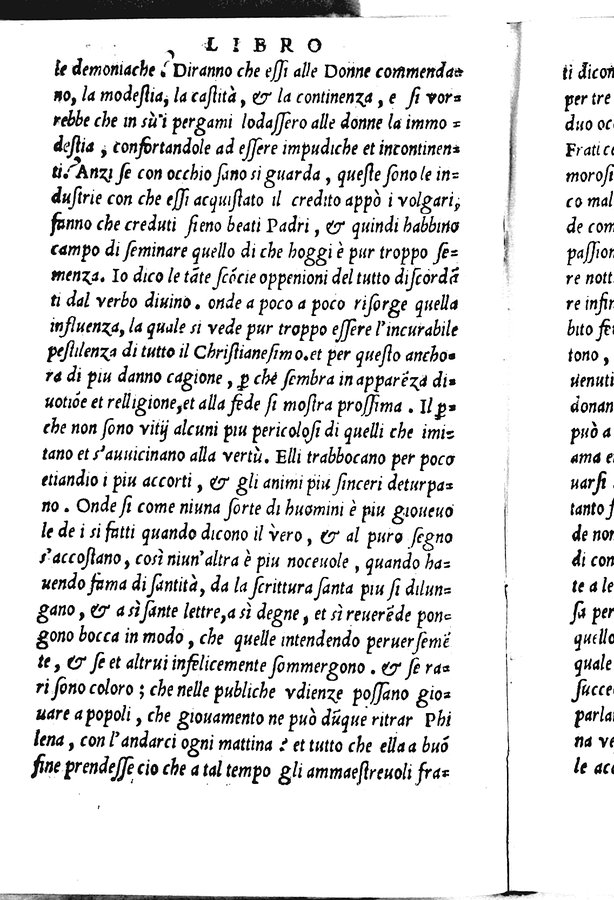 LIBRO
le demoniache ? Diranno che eſſi alle Donne commenda=
no, la modeſtia, la caſtità, & la continenza, e ſi vor=
rebbe che in sù i pergami lodaſſero alle donne la immo =
deſtia, confortandole ad eſſere impudiche et incontinen=
ti? Anzi ſe con occhio ſano si guarda, queſte ſono le in=
duſtrie con che eſſi acquiſtato il credito appò i volgari,
fanno che creduti ſieno beati Padri, & quindi habbino
campo di ſeminare quello di che hoggi è pur troppo ſe=
menza. Io dico le tãte ſcócie oppenioni del tutto diſcordã
ti dal verbo diuino. onde a poco a poco riſorge quella
influenza, la quale si vede pur troppo eſſere l'incurabile
peſtilenza di tutto il Chriſtianeſimo. et per queſto ancho=
ra di piu danno cagione, ꝑ che ſembra in apparẽza di=
uotióe et relligione, et alla fede ſi moſtra proſſima. Il ꝑ=
che non ſono vitij alcuni piu pericoloſi di quelli che imi=
tano et s'auuicinano alla vertù. Elli trabboccano per poco
etiandio i piu accorti, & gli animi piu ſinceri deturpa=
no. Onde ſi come niuna ſorte di huomini è piu gioueuo
le de i si fatti quando dicono il vero, & al puro ſegno
s'accoſtano, così niun'altra è piu noceuole, quando ha=
uendo fama di ſantità, da la ſcrittura ſanta piu ſi dilun=
gano, & a sì ſante lettre, a sì degne, et sì reuerẽde pon=
gono bocca in modo, che quelle intendendo peruerſemẽ
te, & ſe et altrui infelicemente ſommergono. & ſe ra=
ri ſono coloro; che nelle publiche vdienze poſſano gio=
uare a popoli, che giouamento ne può dũque ritrar Phi
lena, con l'andarci ogni mattina? et tutto che ella a buõ
fine prendeſſe cio che a tal tempo gli ammaeſtreuoli fra=
ti dicon
per tre
duo oc
Frati c
moroſi
co mal
de com
paſſion
re nott
re infin
bito fe
tono,
uenuti
donan
può a
ama e
uarſi
tanto
de non
di con
te a le
ſa per
quello
quale
ſucce
parlan
na ve
le acc